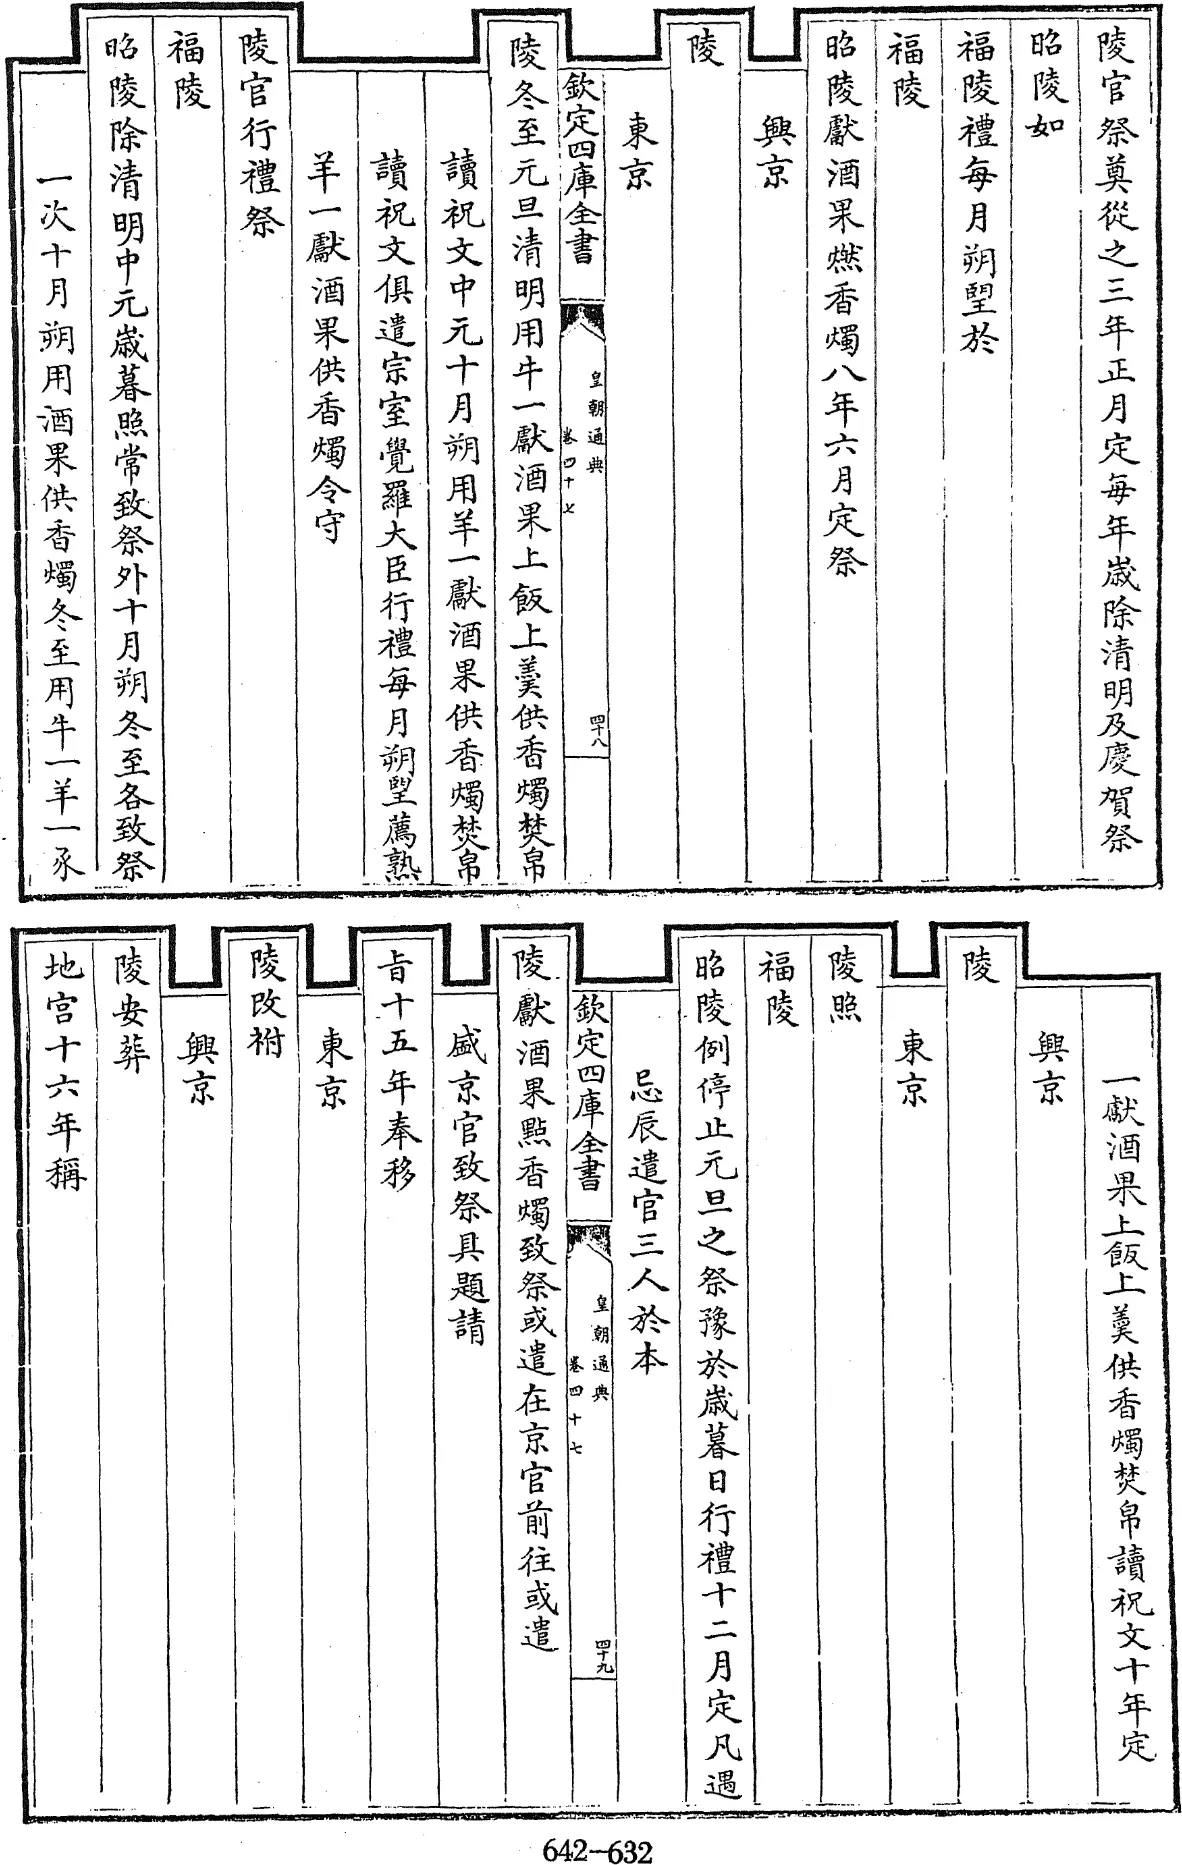 陵官祭奠從之三年正月定每年歲除清明及慶賀祭
昭陵如
福陵禮每月朔望於
福陵
昭陵獻酒果燃香燭八年六月定祭
興京
陵
東京
欽定四庫全書
皇朝通典
卷四十七
四十八
陵冬至元旦清明用牛一獻酒果上飯上羹供香燭焚帛
讀祝文中元十月朔用羊一獻酒果供香燭焚帛
讀祝文俱遣宗室覺羅大臣行禮每月朔望薦熟
羊一獻酒果供香燭令守
陵官行禮祭
福陵
昭陵除清明中元歲暮照常致祭外十月朔冬至各致祭
一次十月朔用酒果供香燭冬至用牛一羊一豕
一獻酒果上飯上羹供香燭焚帛讀祝文十年定
興京
陵
東京
陵照
福陵
昭陵例停止元旦之祭豫於歲暮日行禮十二月定凡遇
忌辰遣官三人於本
欽定四庫全書
皇朝通典
卷四十七
四十九
陵獻酒果點香燭致祭或遣在京官前往或遣
盛京官致祭具題請
旨十五年奉移
東京
陵改祔
興京
陵安葬
地宮十六年稱
642-632